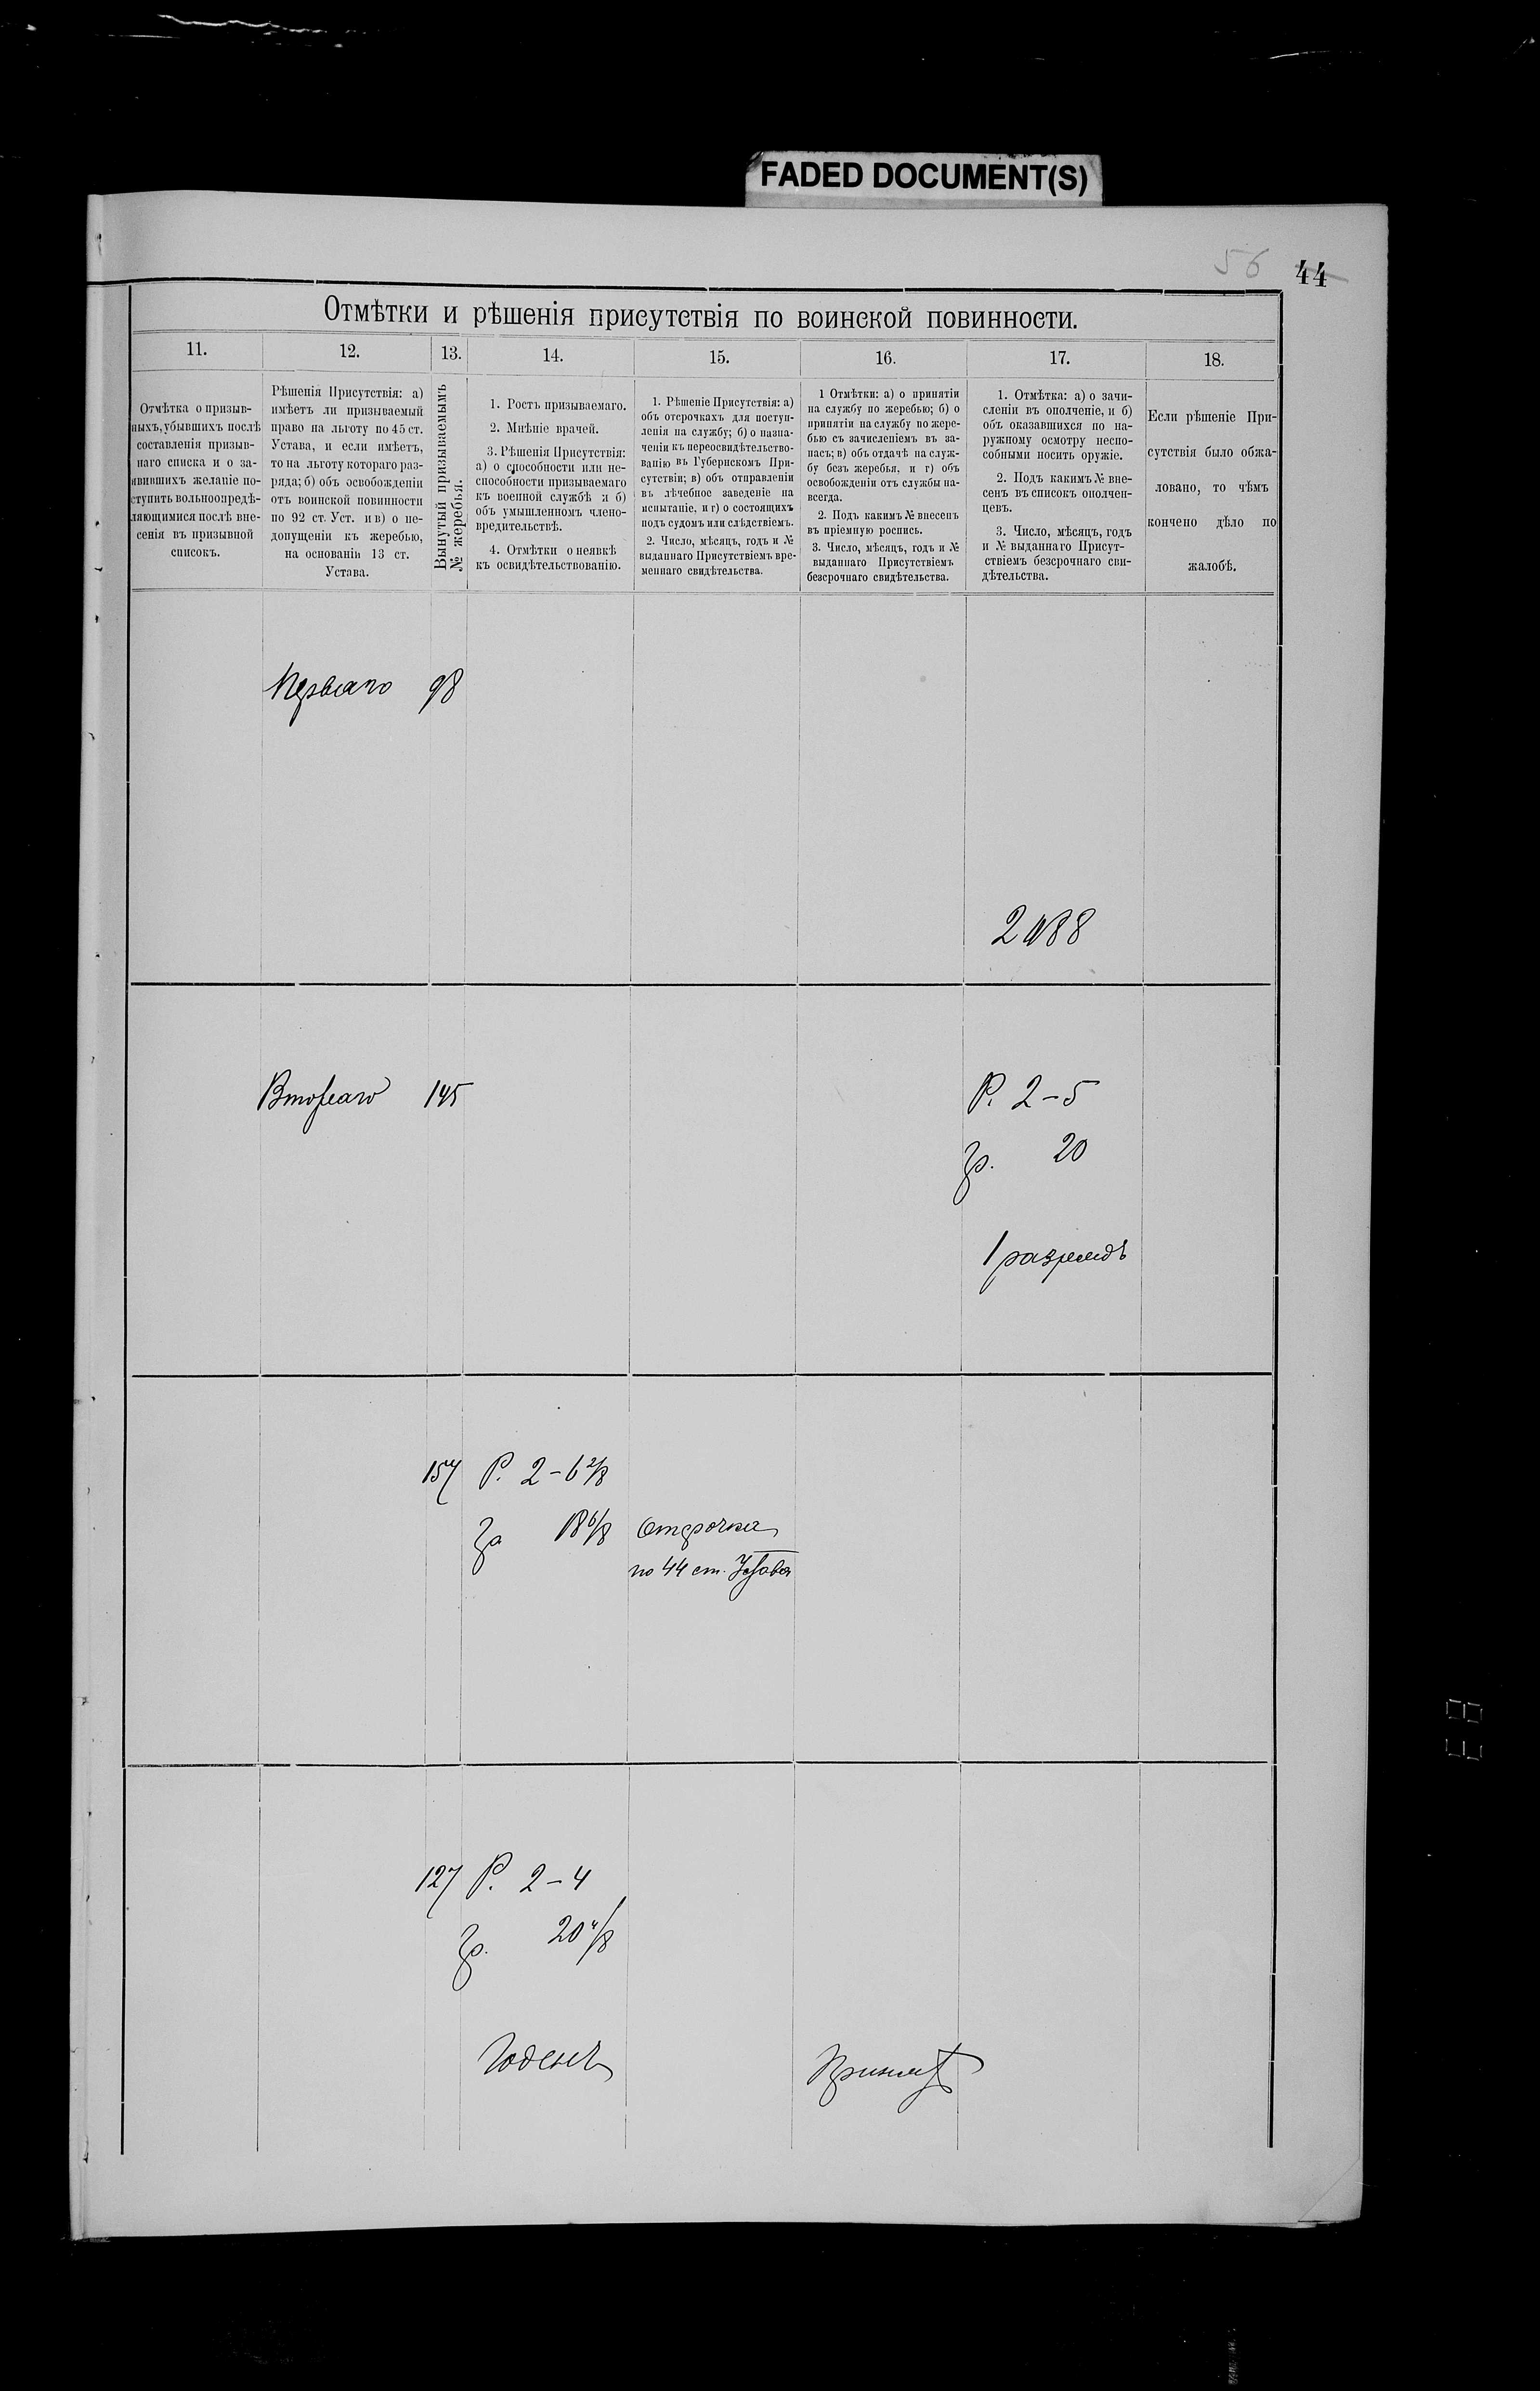 FADED DOCUMENT(S)
56 44
Отмѣтки и рѣшенія присутствія по воинской повинности.
11. 12. 13. 14. 15. 16. 17. 18.
Отмѣтка о призыв-
ныхъ, убывшихъ послѣ
составленія призыв-
наго списка и о за-
явившихъ желаніе по-
ступить вольноопредѣ-
ляющимися послѣ вне-
сенія въ призывной
списокъ.
Рѣшенія Присутствія: а)
имѣетъ ли призываемый
право на льготу по 45 ст.
Устава, и если имѣетъ,
то на льготу котораго раз-
ряда; б) объ освобожденіи
отъ воинской повинности
по 92 ст. Уст. и в) о не-
допущеніи къ жеребью,
на основаніи 13 ст.
Устава.
Вынутый призываемымъ
№ жеребья.
1. Ростъ призываемаго.
2. Мнѣніе врачей.
3. Рѣшенія Присутствія:
а) о способности или не-
способности призываемаго
къ военной службѣ и б)
объ умышленномъ члено-
вредительствѣ.
4. Отмѣтки о неявкѣ
къ освидѣтельствованію.
1. Рѣшеніе Присутствія: а)
объ отсрочкахъ для поступ-
ленія на службу; б) о назна-
ченіи къ переосвидѣтельство-
ванію въ Губернскомъ При-
сутствіи; в) объ отправленіи
въ лѣчебное заведеніе на
испытаніе, и г) о состоящихъ
подъ судомъ или слѣдствіемъ.
2. Число, мѣсяцъ, годъ и №
выданнаго Присутствіемъ вре-
меннаго свидѣтельства.
1 Отмѣтки: а) о принятіи
на службу по жеребью; б) о
принятіи на службу по жере-
бью съ зачисленіемъ въ за-
пасъ; в) объ отдачѣ на служ-
бу безъ жеребья, и г) объ
освобожденіи отъ службы на-
всегда.
2. Подъ какимъ № внесенъ
въ пріемную роспись.
3. Число, мѣсяцъ, годъ и №
выданнаго Присутствіемъ
безсрочнаго свидѣтельства.
1. Отмѣтка: а) о зачи-
сленіи въ ополченіе, и б)
объ оказавшихся по на-
ружному осмотру неспо-
собными носить оружіе.
2. Подъ какимъ № вне-
сенъ въ списокъ ополчен-
цевъ.
3. Число, мѣсяцъ, годъ
и № выданнаго Присут-
ствіемъ безсрочнаго сви-
дѣтельства.
Если рѣшеніе При-
сутствія было обжа-
ловано, то чѣмъ
кончено дѣло по
жалобѣ.
Перваго 98
Втораго 145 Р. 2-5
гр. 20
1 разрядъ
157 Р. 2-6 2/8
18 6/8 Отсрочка
по 44 ст. Устава
127 Р. 2-4
гр. 20 4/8
Годенъ Принятъ